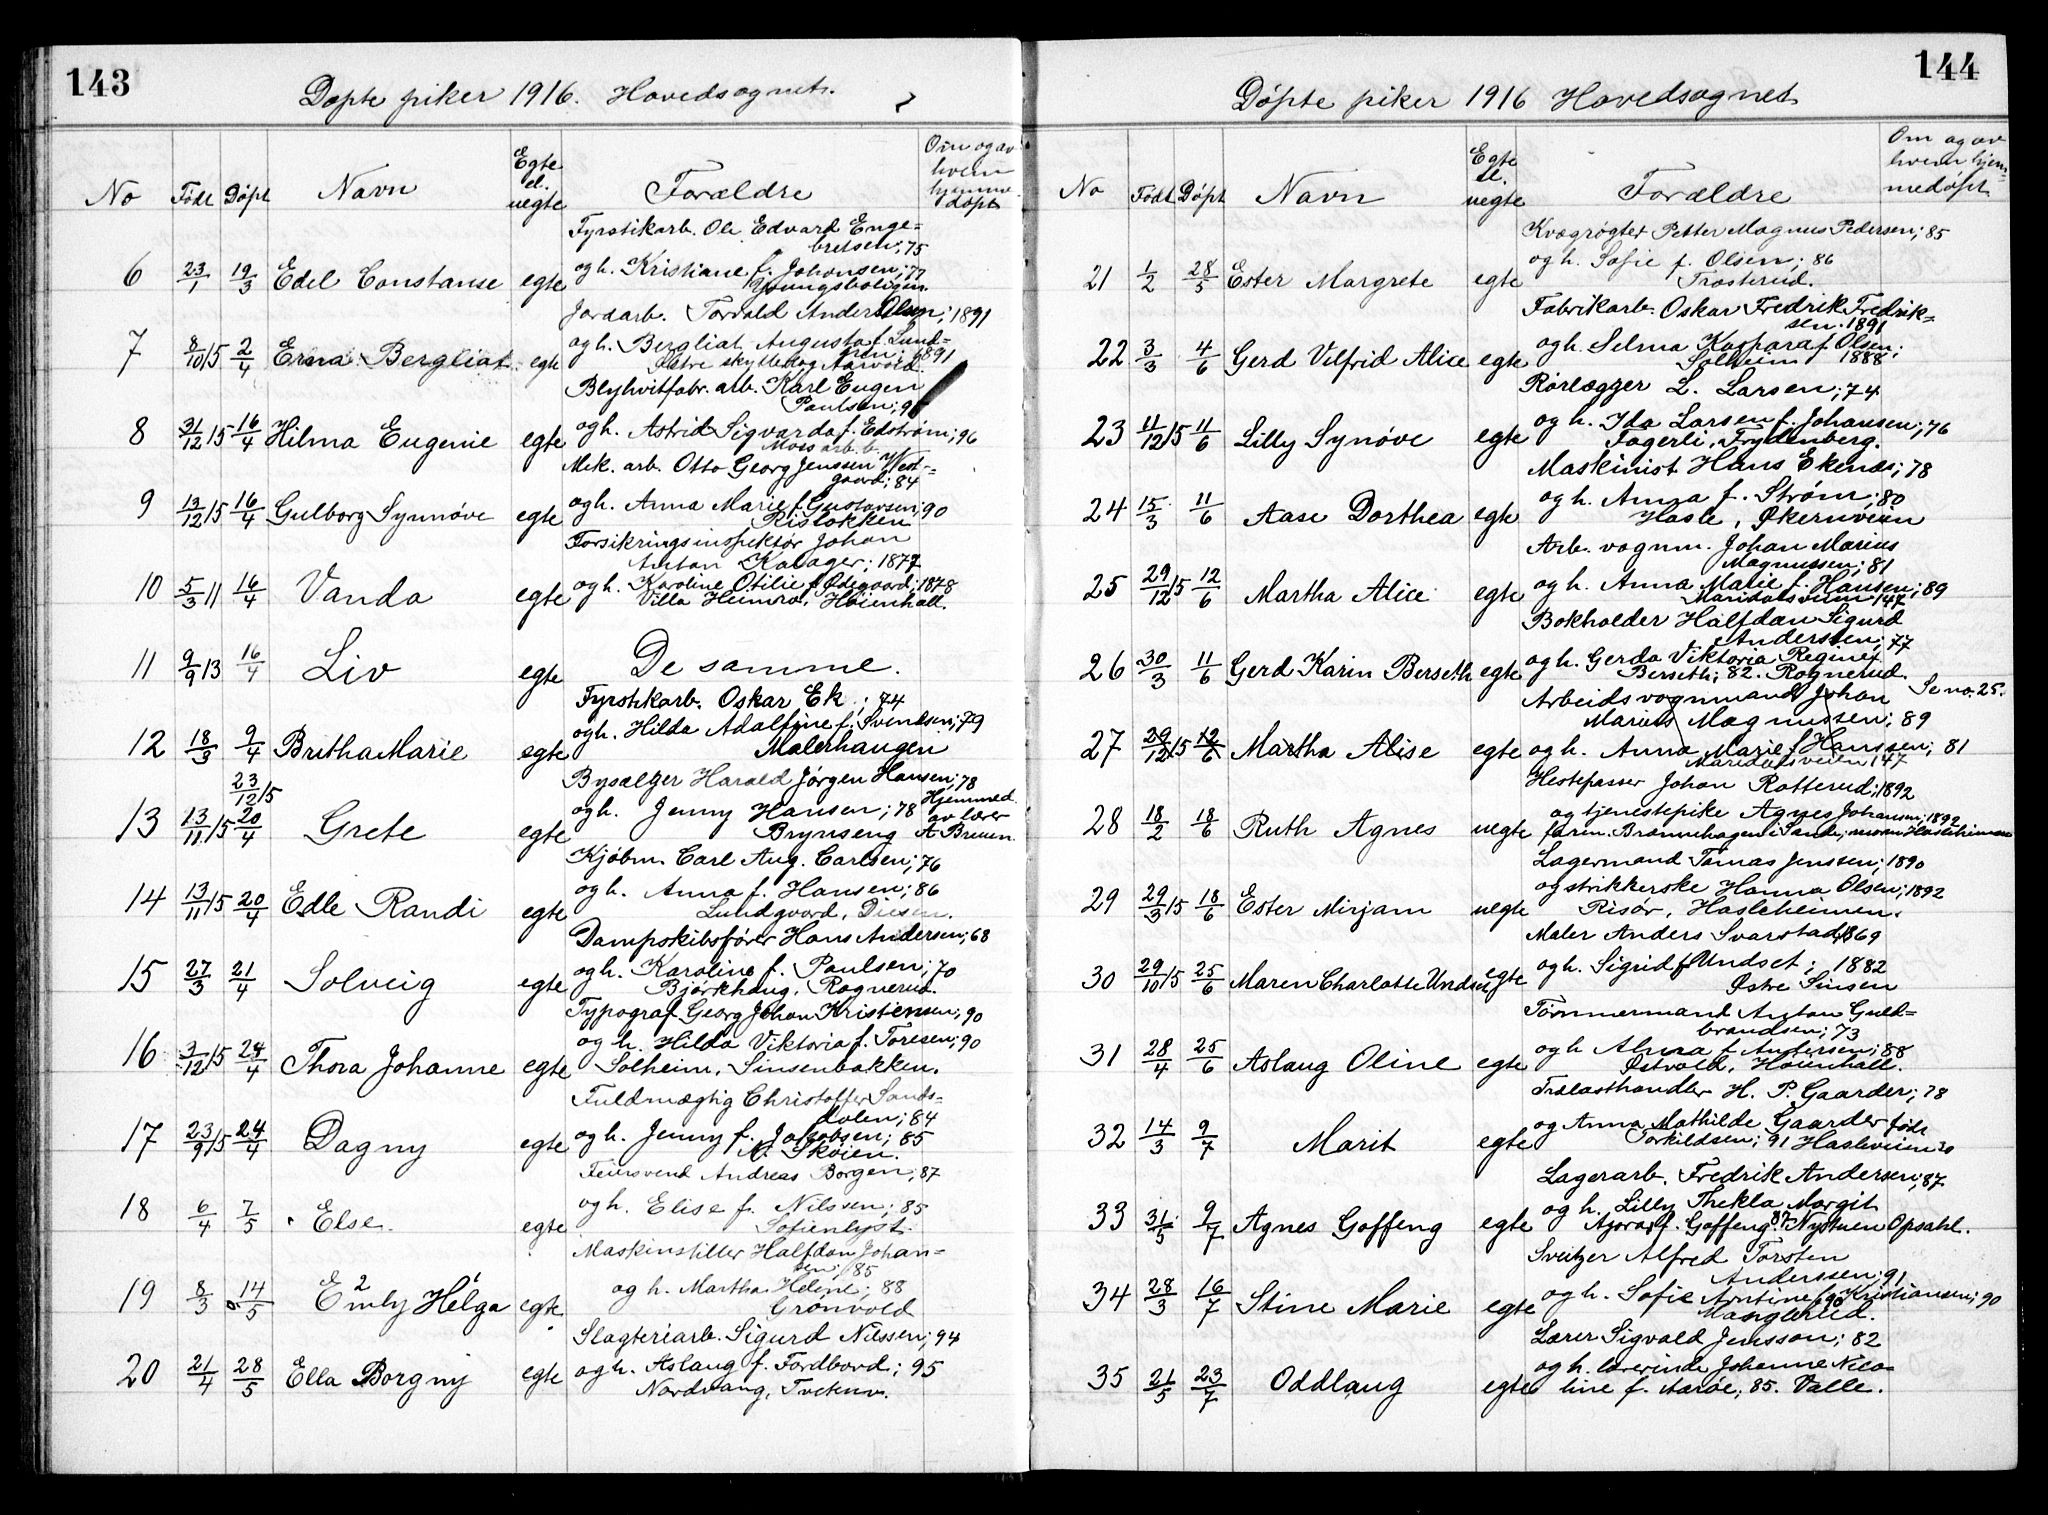 143
Døpte piker 1916. Hovedsognet.
No Født Døpt Navn Egte el. uegte Forældre Om og av hvem hjemmedøpt
Fyrstikarb. Ole Edvard Enge-
bretsen; 75
6 23/1 19/3 Edel Constanse egte og h. Kristiane f. Johansen; 77
Jordarb. Torvald Anders Olsen; 1891
7 8/10 15 2/4 Erna Bergliot egte og h. Bergliot Augusta f. Lund-
gren; 1891
Østre skytteblog Aarvold.
Blyhvitfabr. arb. Karl Eugen
Paulsen; 95
8 31/12 15 16/4 Hilma Eugenie egte og h. Astrid Sigvarda f. Edstrøm; 96
Moss arb. b.
Mek. arb. Otto Georg Jenssen West-
gaard; 84
9 13/12 15 16/4 Gulborg Synnøve egte og h. Anna Marie f. Gustavsen; 90
Risløkken
Forsikringsinspektør Johan
Anton Kavager; 1877
10 5/3 11 16/4 Vanda egte og h. Karoline Otilie f. Ødegaard; 1878
Villa Heimro, Høienhall.
11 9/9 13 16/4 Liv egte De samme.
Fyrstikarb. Oskar Ek; 74
og h. Hilda Adalfine f. Svendsen; 79
12 18/3 9/4 Britha Marie egte Malerhaugen
23/12 15
Bysælger Harald Jørgen Hansen; 78
13 13/11 15 20/4 Grete egte og h. Jenny Hansen; 78 Hjemmed. av lærer
Brynseng A Breien.
Kjøbm. Carl Aug. Carlsen; 76
14 13/11 15 20/4 Edle Randi egte og h. Anna f. Hansen; 86
Lundgaard, Disen.
Dampskibsfører Hans Andersen; 68
15 27/3 21/4 Solveig egte og h. Karoline f. Paulsen; 70
Bjørkhaug, Rognerud.
Typograf Georg Johan Kristensen; 90
16 3/12 15 24/4 Thora Johanne egte og h. Hilda Viktoria f. Toresen; 90
Solheim, Sinsenbakken.
Fuldmægtig Christoffer Sands-
dalen; 84
17 23/9 15 24/4 Dagny egte og h. Jenny f. Jakobsen; 85
N. Skøien.
Feiersvend Andreas Borgen; 87
18 6/4 7/5 Else egte og h. Elise f. Nilssen; 85
Sofienlyst.
Maskinstiller Halfdan Johan-
sen; 85
19 8/3 14/5 Emly Helga egte og h. Martha Heline; 88
Grønvold
Slagteriarb. Sigurd Nilssen; 94
20 21/4 28/5 Ella Borgny egte og h. Aslaug f. Fordbord; 95
Nordvang, Tvetenv.
144
Døpte piker 1916 Hovedsognet
No Født Døpt Navn Egte el. uegte Forældre Om og av hvem hjemmedøpt
Kvægrøgter Petter Magnus Pedersen; 85
21 1/2 28/5 Ester Margrete egte og h. Sofie f. Olsen; 86
Trosterud.
Fabrikarb. Oskar Fredrik Fredrik-
sen. 1891
22 3/3 4/6 Gerd Vilfrid Alice egte og h. Selma Kaspara f Olsen;
Solheim 1888
Rørlægger L. Larsen; 74
23 11/12 15 11/6 Lilly Synøve egte og h. Ida Larsen f. Johansen; 76
Fagerli, Frydenberg.
Maskinist Hans Ekenæs; 78
24 15/3 11/6 Aase Dorthea egte og h. Anna f. Strøm; 80
Hasle, Økernveien
Arb. vognm. Johan Marius
Magnussen; 81
25 29/12 15 12/6 Martha Alice egte og h. Anna Marie f. Hansen; 89
Maridalsveien 147
Bokholder Halfdan Sigurd
Anderssen; 77
26 30/3 11/6 Gerd Karin Berseth egte og h. Gerda Viktoria Regine f.
Berseth; 82. Rognerud.
Arbeidsvognmand Johan Se no. 25.
Marius Magnussen; 89
27 29/12 15 12/6 Martha Alise egte og h. Anna Marie f. Hanssen; 81
Maridalsveien 147
Hestepasser Johan Rotterud; 1892
og tjenestepike Agnes Johansen; 1892
28 18/2 18/6 Ruth Agnes uegte faren Brønnhagen i Sande; moren Hasleheimen
Lagermand Tomas Jenssen; 1890
29 29/3 15 18/6 Ester Mirjam uegte og strikkerske Hanna Olsen; 1892
Risør, Hasleheimen.
Maler Anders Svarstad; 1869
30 29/10 15 25/6 Maren Charlotte Undset egte og h. Sigrid f Undset; 1882
Østre Sinsen
Tømmermand Anton Guld-
brandsen; 73
31 28/4 25/6 Aslaug Oline egte og h Alma f. Andersen; 88
Østvold, Høienhall.
Trælasthandler H. P. Gaarder; 78
32 14/3 9/7 Marit egte og Anna Mathilde Gaarder født
Torkildsen; 91 Hasleveien 30
Lagerarb. Fredrik Andersen; 87
og h. Lilly Thekla Margit
33 31/5 9/7 Agnes Goffeng egte f. Goffeng 87 Nystuen Opsahl.
Sveitzer Alfred Torsten
Anderssen; 91
34 28/3 16/7 Stine Marie egte og h. Sofie Antine f. Kristiansen; 90
Manglerud.
Lærer Sigvald Jensson; 82
35 21/5 23/7 Oddlaug egte og h. lærerinde Johanne Nico-
line f. Aarøe; 85. Valle.